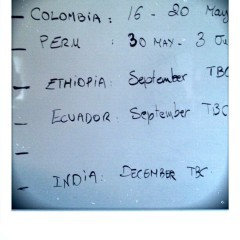 - COLOMBIA: 16 - 20 May
- PERU : 30 MAY - 3 Ju
- ETHIOPIA: September TBC
- ECUADOR: September TBC
- INDIA: DECEMBER TBC